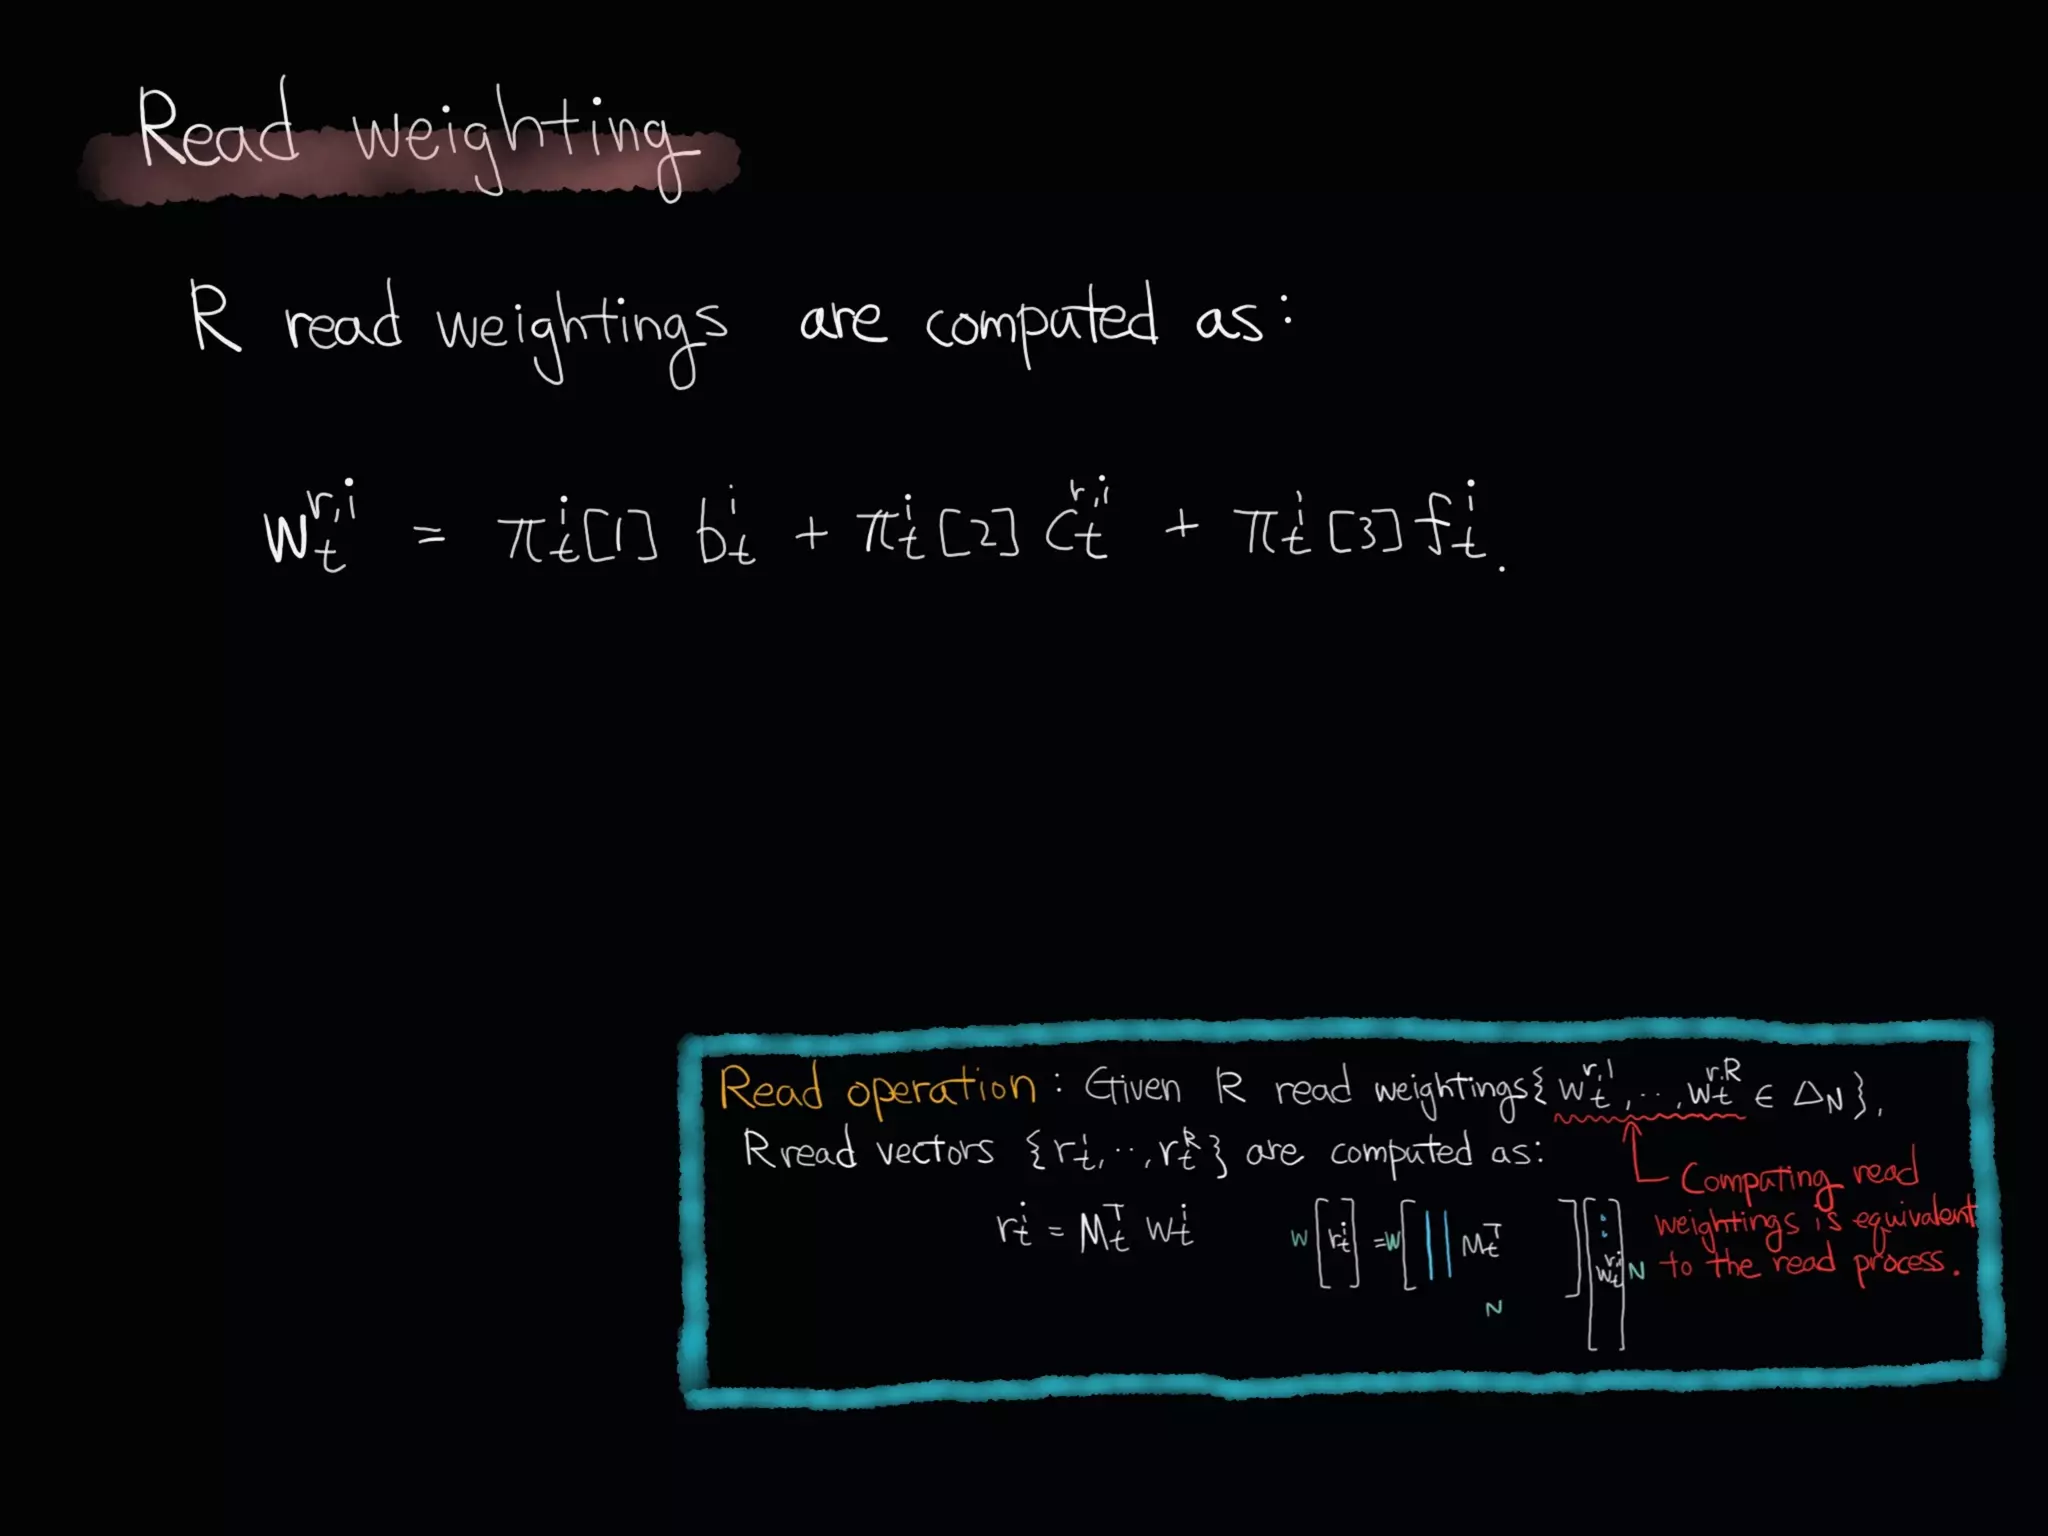 Read weighting
R read weightings are computed as:
w_t^{r,i} = π_t^i[1] b_t^i + π_t^i[2] c_t^{r,i} + π_t^i[3] f_t^i.
Read operation : Given R read weightings{w_t^{r,1}, ‥, w_t^{r,R} ∈ Δ_N},
R read vectors {r_t^1, ‥, r_t^R} are computed as:
r_t^i = M_t^T w_t^i
W [r_t^i] = W [ M_t^T ] [w_t^{r,i}] N
N
Computing read
weightings is equivalent
to the read process.